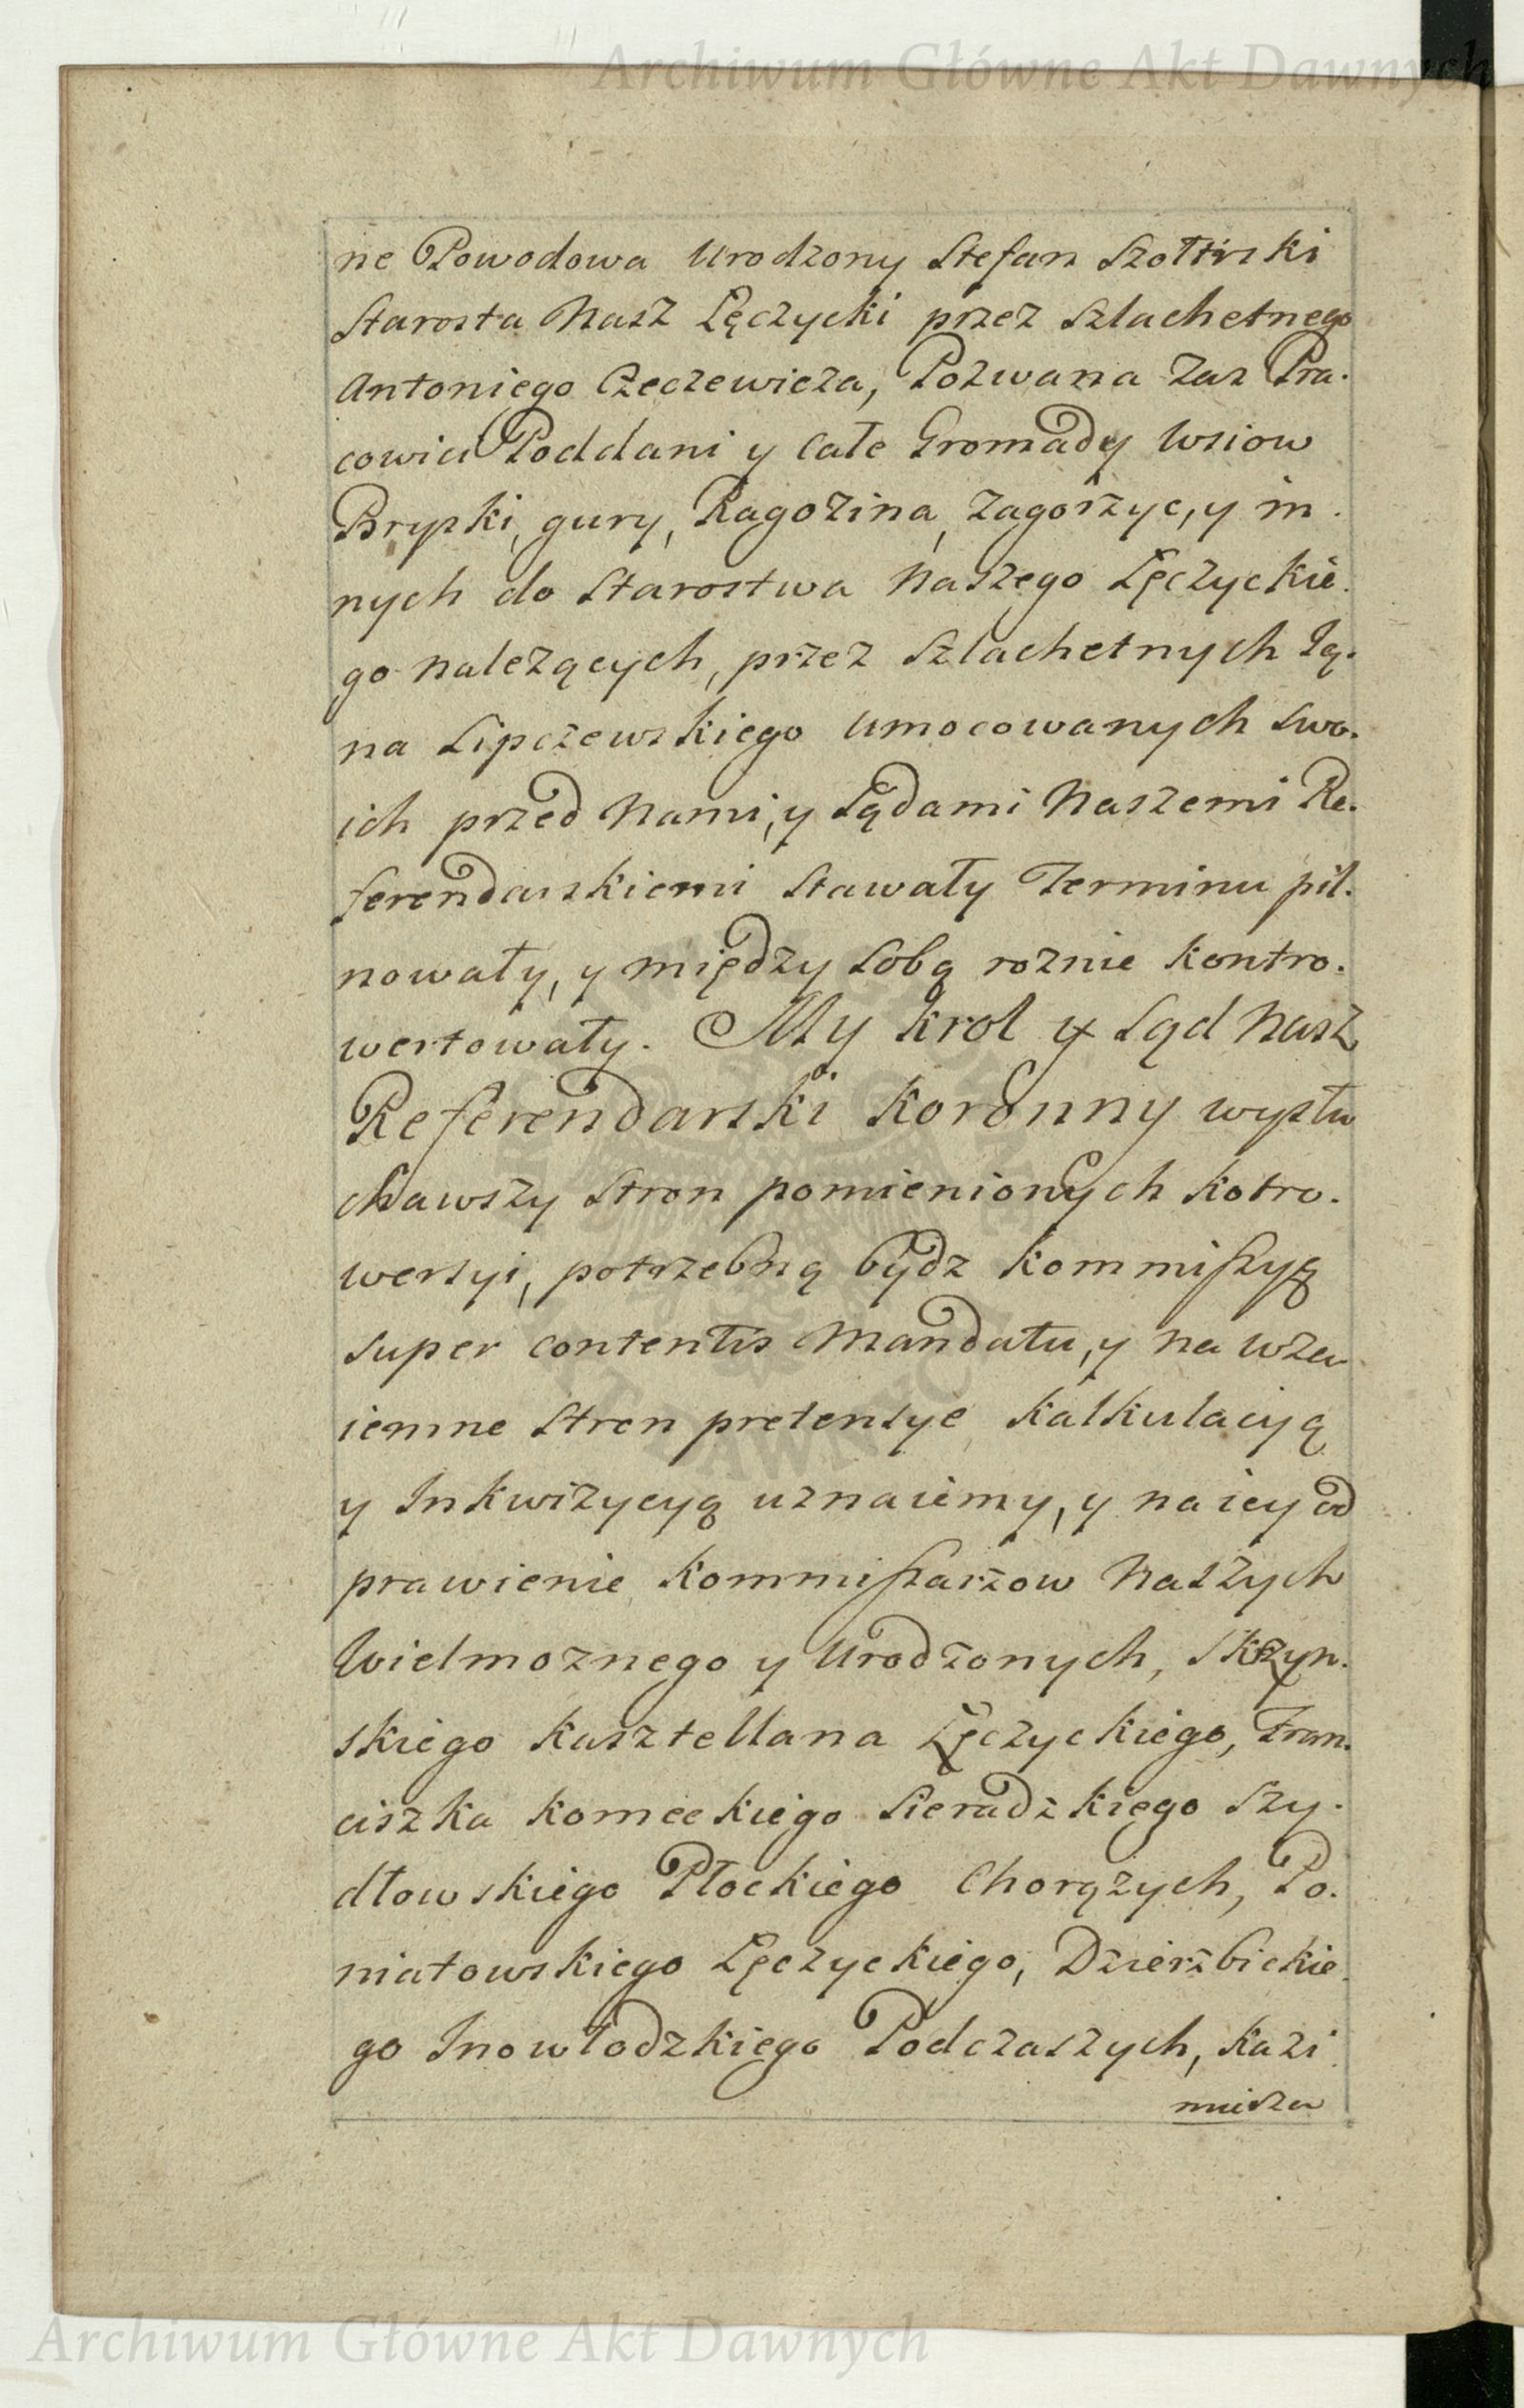 Archiwum Główne Akt Dawnych
ne Powodowa Urodzony Stefan Szołtirski
Starosta Nasz Łęczycki przez Szlachetnego
Antoniego Czeczewicza, Pozwana Zas Pra.
cowici Poddani y Całe Gromady Wsiow
Bryski, gury, Ragozina, Zagorzyc, y in.
nych do Starostwa Naszego Łęczyckie.
go nalezących, przez Szlachetnych Ią.
na Lipczewskiego Umocowanych Swo.
ich przed Nami, y Sądami Naszemi Re.
ferendarskiemi Stawały Terminu pil.
nowały, y między Sobą roznie kontro.
wertowały. My Krol y Sąd Nasz
Referendarski Koronny wysłu
chawszy Stron pomienionych kotro.
wersyi, potrzebną bydz kommissyą
super contentis Mandatu, y na wza
iemne Stron pretensye kalkulacyą
y Inkwizycyą uznaiemy, y na iey od
prawienie kommissarzow Naszych
Wielmoznego y Urodzonych, Skrzyn.
skiego Kasztellana Łęczyckiego, Fran.
ciszka komeckiego Sieradzkiego Szy.
dłowskiego Płockiego Chorązych, Po.
niatowskiego Łęczyckiego, Dzierzbickie.
go Inowłodzkiego Podczaszych, Kazi
mirza
Archiwum Główne Akt Dawnych